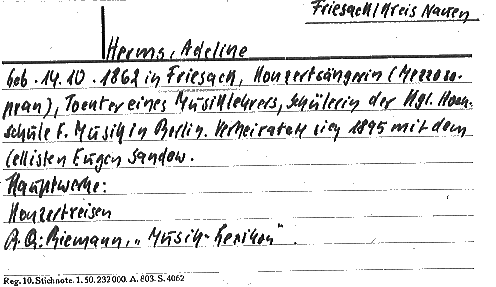 Friesack/Kreis Nauen
Herms, Adeline
geb. 14.10.1862 in Friesack, Konzertsängerin (Mezzoso-
pran), Tochter eines Musiklehrers, Schülerin der Kgl. Hoch-
schule f. Musik in Berlin. Verheiratete sich 1895 mit dem
Cellisten Eugen Sandow.
Hauptwerke:
Konzertreisen
Riemann, „Musik-Lexikon“.
Reg. 10. Stichnote. 1. 50. 232000. A. 803. S. 4062